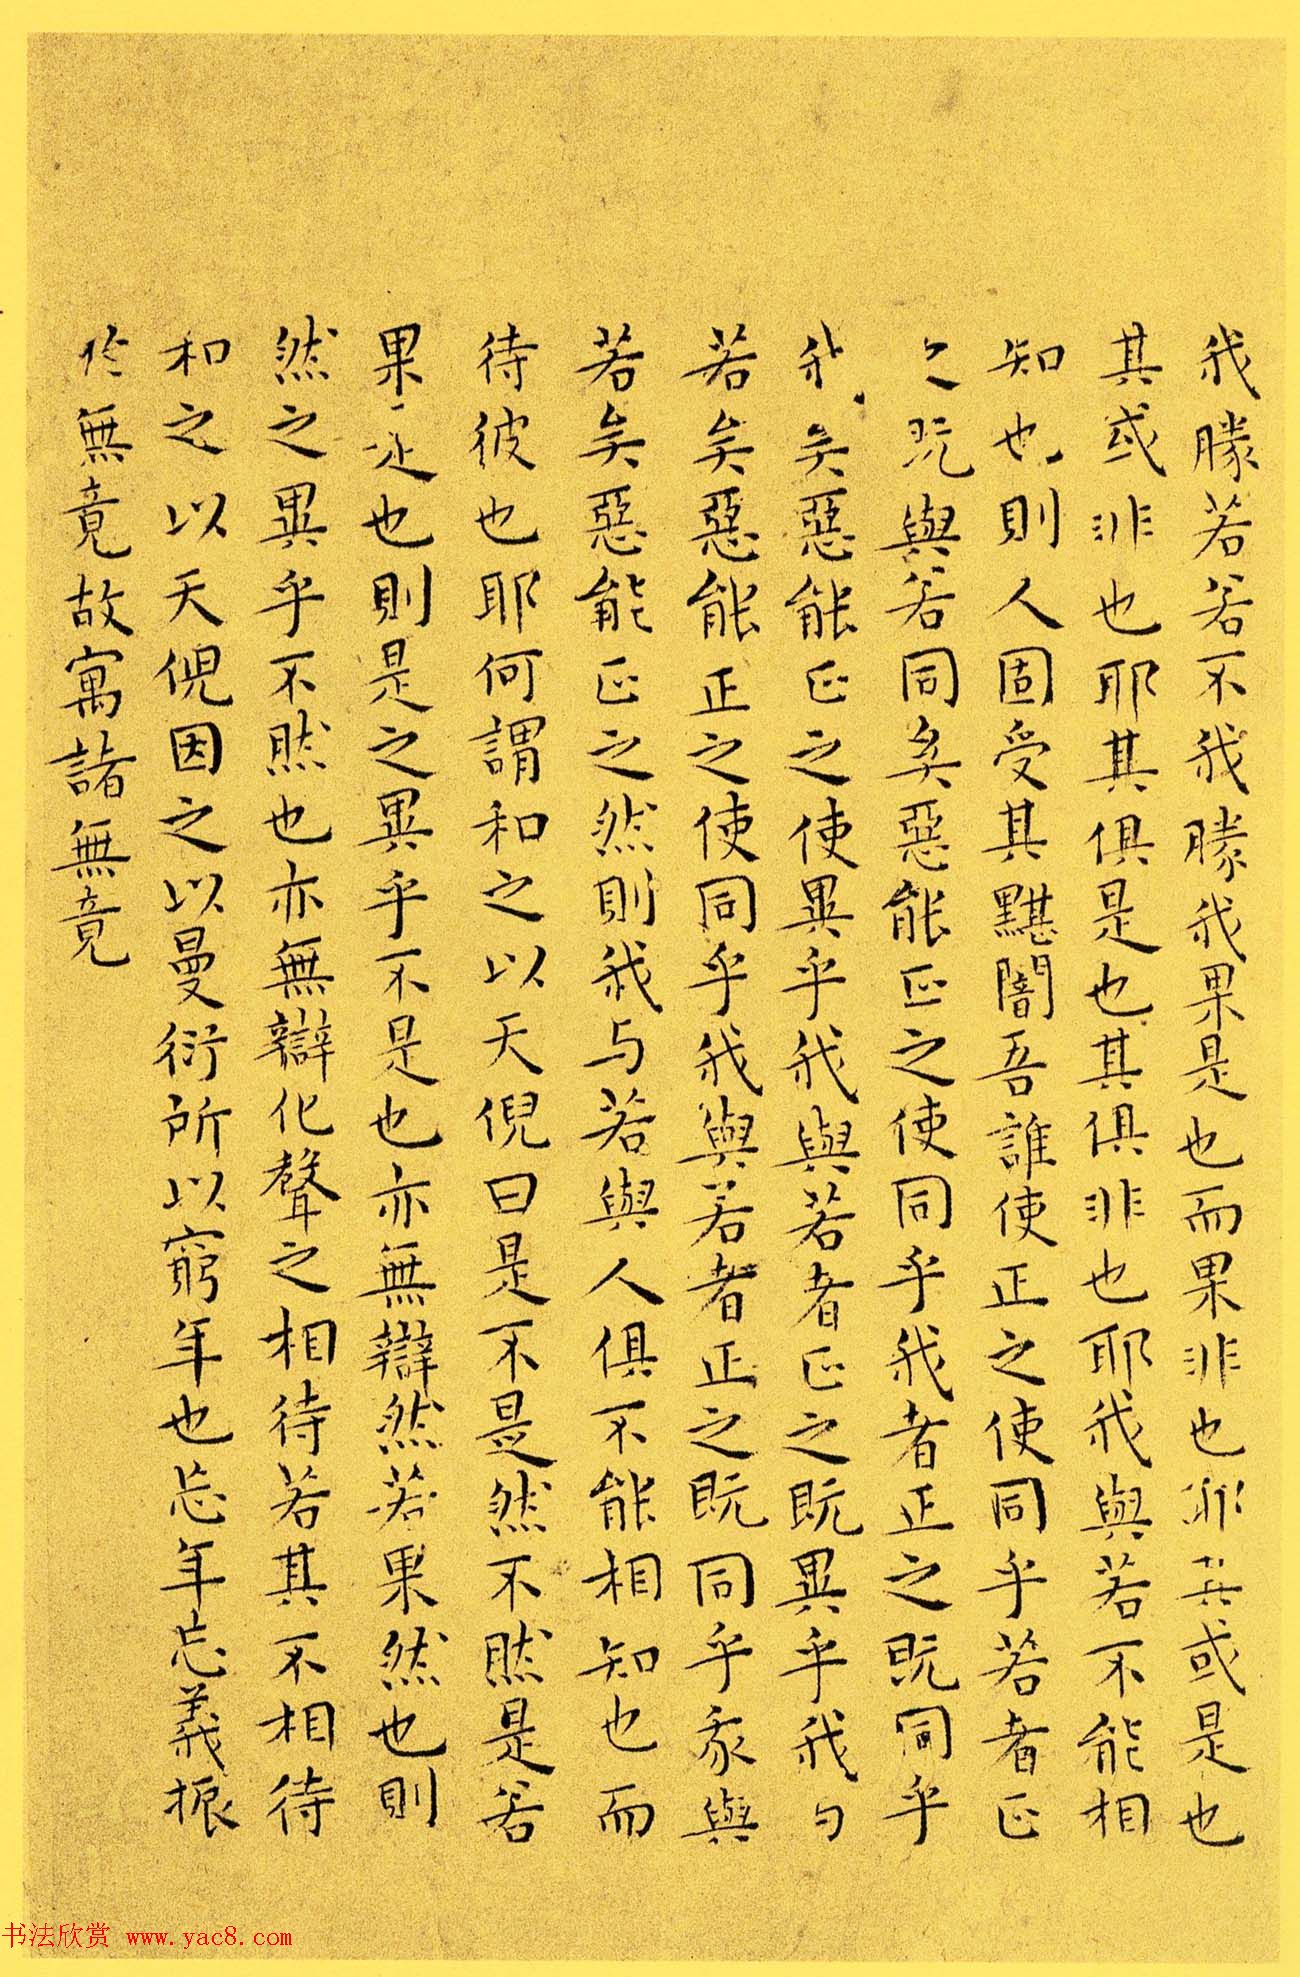 我勝若若不我勝我果是也而果非也耶其或是也
其或非也耶其俱是也其俱非也耶我與若不能相
知也則人固受其黮闇吾誰使正之使同乎若者正
之既與若同矣惡能正之使同乎我者正之既同乎
我矣惡能正之使異乎我與若者正之既異乎我与
若矣惡能正之使同乎我與若者正之既同乎我與
若矣惡能正之然則我与若與人俱不能相知也而
待彼也耶何謂和之以天倪曰是不是然不然是若
果是也則是之異乎不是也亦無辯然若果然也則
然之異乎不然也亦無辯化聲之相待若其不相待
和之以天倪因之以曼衍所以窮年也忘年忘義振
於無竟故寓諸無竟
书法欣赏 www.yac8.com